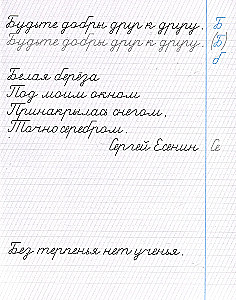 Будьте добры друг к другу. Б
Будьте добры друг к другу. (Б)
б
Белая берёза
Под моим окном
Принакрылась снегом,
Точно серебром.
Сергей Есенин Се
Без терпенья нет ученья.